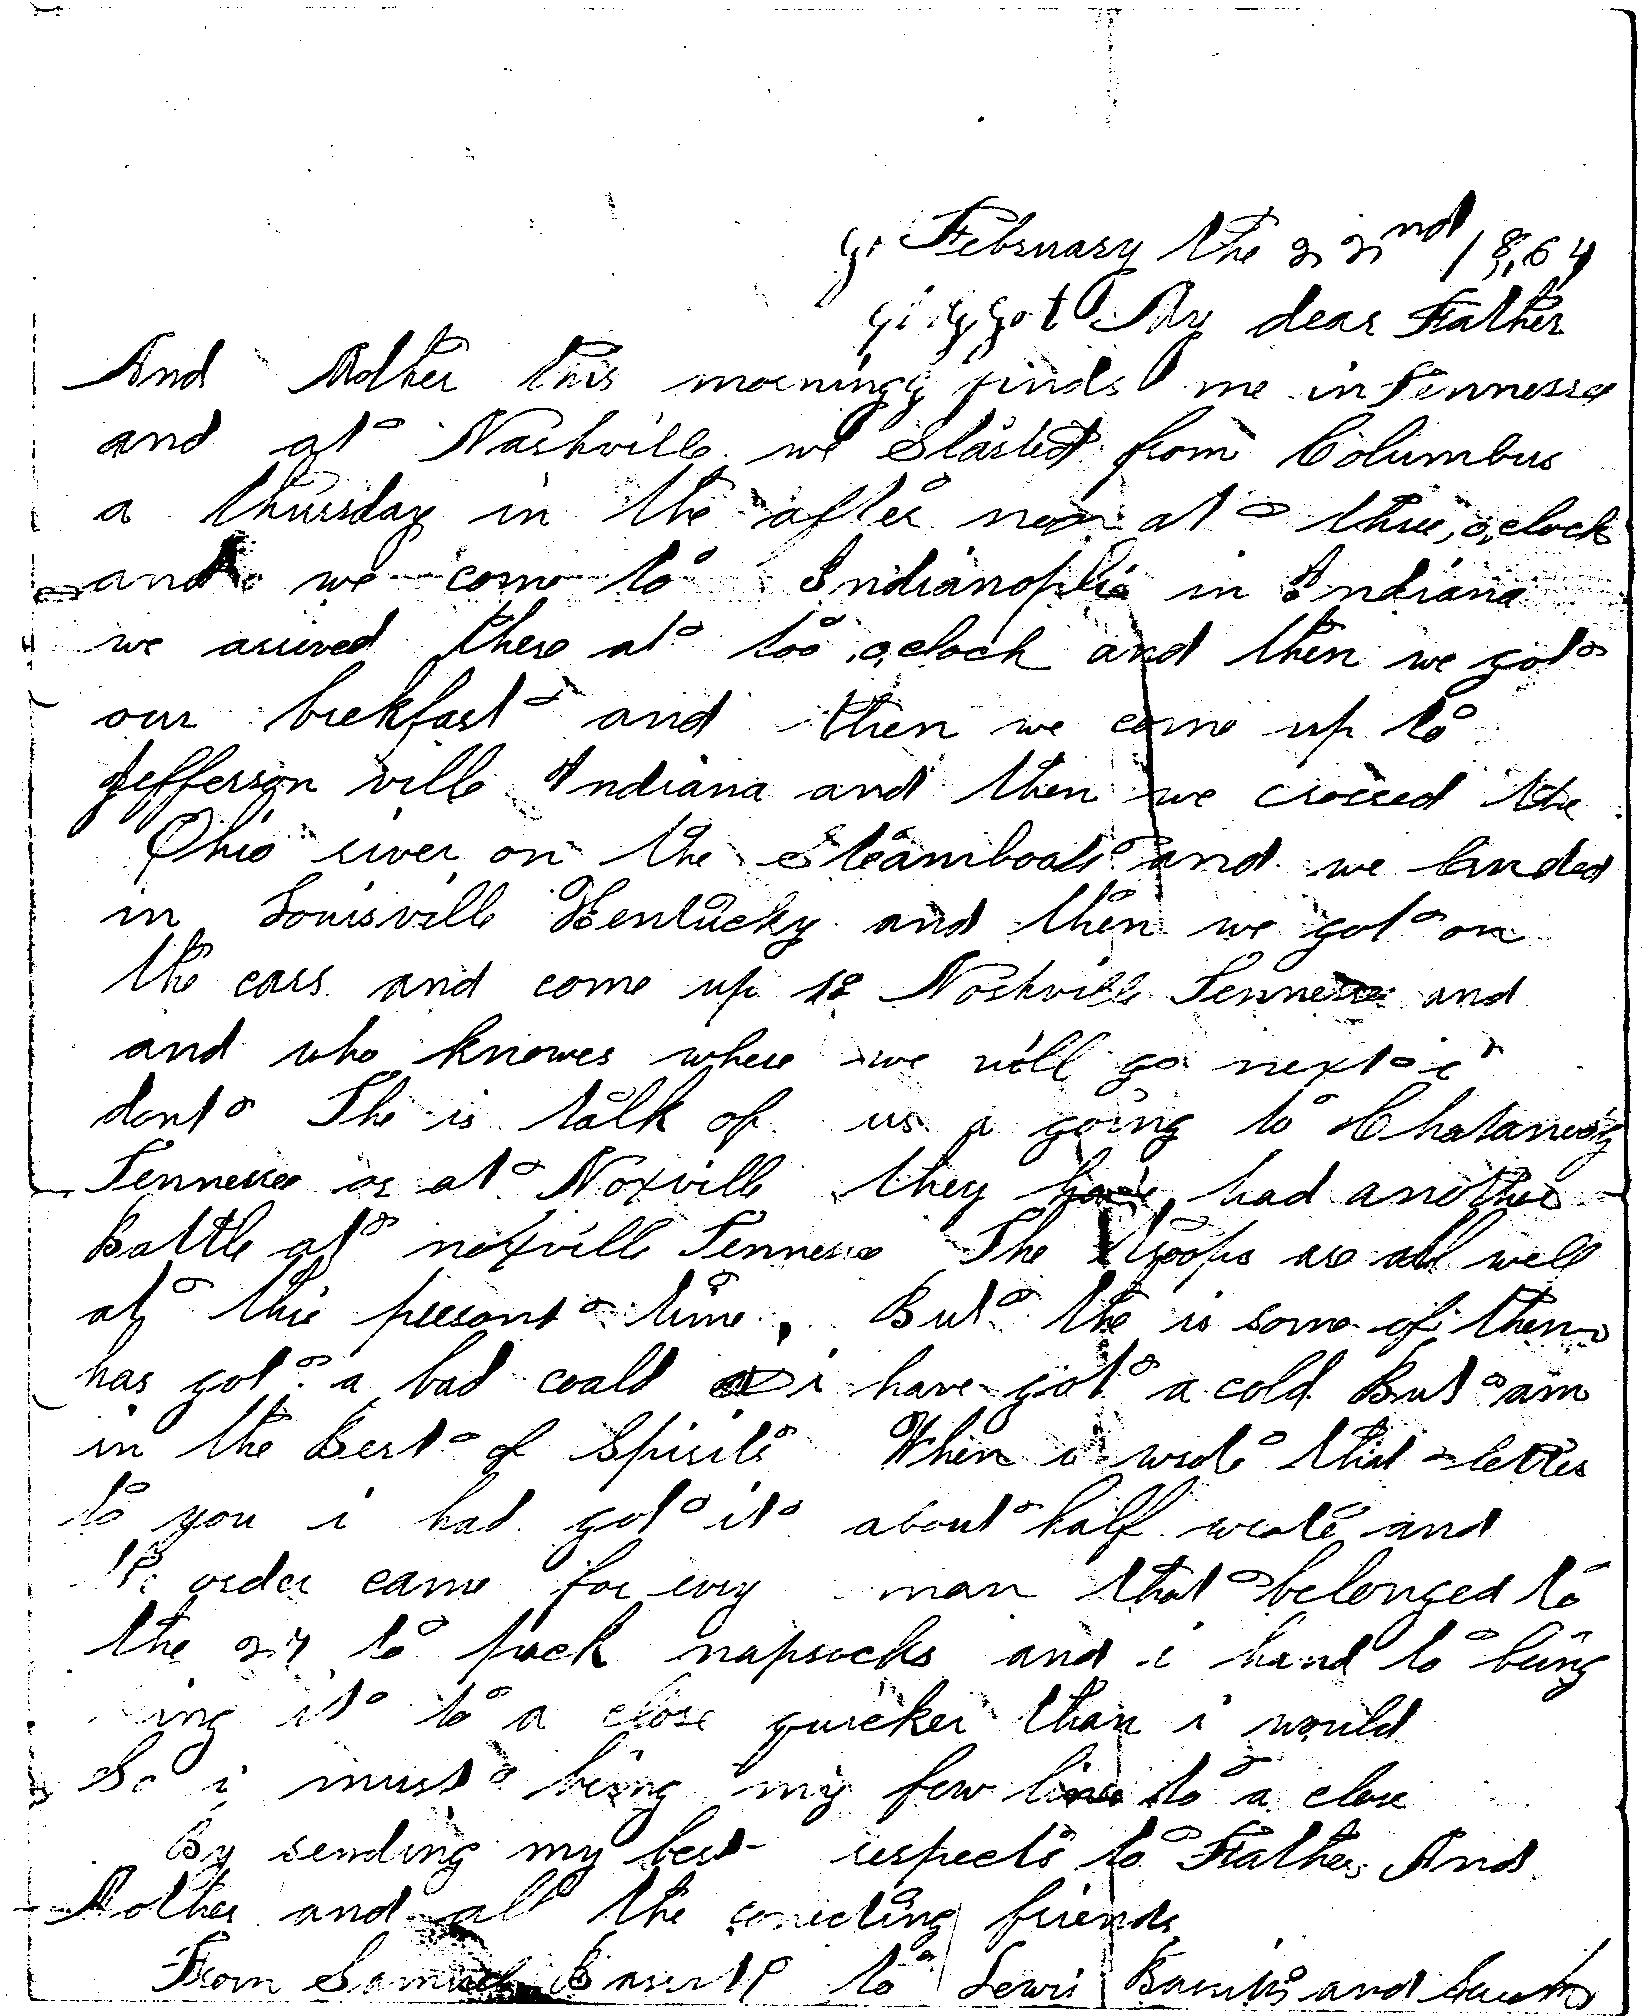 February the 22nd 1864
My dear Father
And Mother this morning finds me in Tennessee
and at Nashville we started from Columbus
a thursday in the after noon at three, o,clock
and we come to Indianoplis in Indiana
we arived there at too ,o,clock and then we got
our brekfast and then we come up to
Jefferson ville Indiana and then we crossed the
Ohio river on the Steamboat and we landed
in Louisville Kentucky and then we got on
the cars and come up to Nashville Tennessee and
and who knowes where we will go next i
dont The is talk of us a going to Chatanoog
Tennessee or at Noxville they have had another
Battle at noxville Tennessee The troops are all well
at this presant time, But the is some of them
has got a bad coald i have got a cold But am
in the Best of Spirits When i wrote that letter
to you i had got it about half wrote and
order came for evry man that belonged to
the to pack napsacks and i hand to bring
ing it to a close quicker than i would
So i must bring my few lines to a close
By sending my best respects to Father And
Mother and all the friends
From Samuel to Lewis and